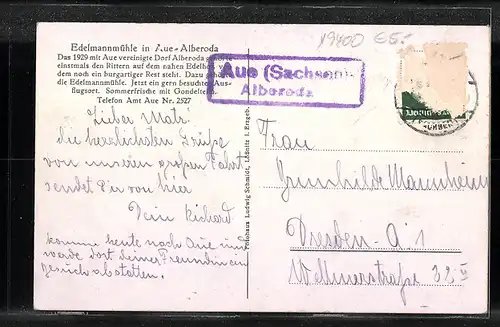 Edelmannmühle in Aue-Alberoda
Das 1929 mit Aue vereinigte Dorf Alberoda gehörte
einstmals den Rittern auf dem nahen Edelhof, von
dem noch ein burgartiger Rest steht. Dazu gehört
die Edelmannmühle. Jetzt ein gern besuchter Aus-
flugsort. Sommerfrische mit Gondelteich.
Telefon Amt Aue Nr. 2527
19400 €5.-
Aue (Sachsen)
Alberoda
Lieber Matz!
die herzlichsten Grüße
von unserer großen Fahrt
sendet Dir von hier
Dein Richard
komme heute nach Aue und
werde dort deiner Freundin ein
gesuch abstatten.
Photohaus Ludwig Schmidt, Lößnitz i. Erzgeb.
Frau
Mannheim
Dresden-A. 1
32 II